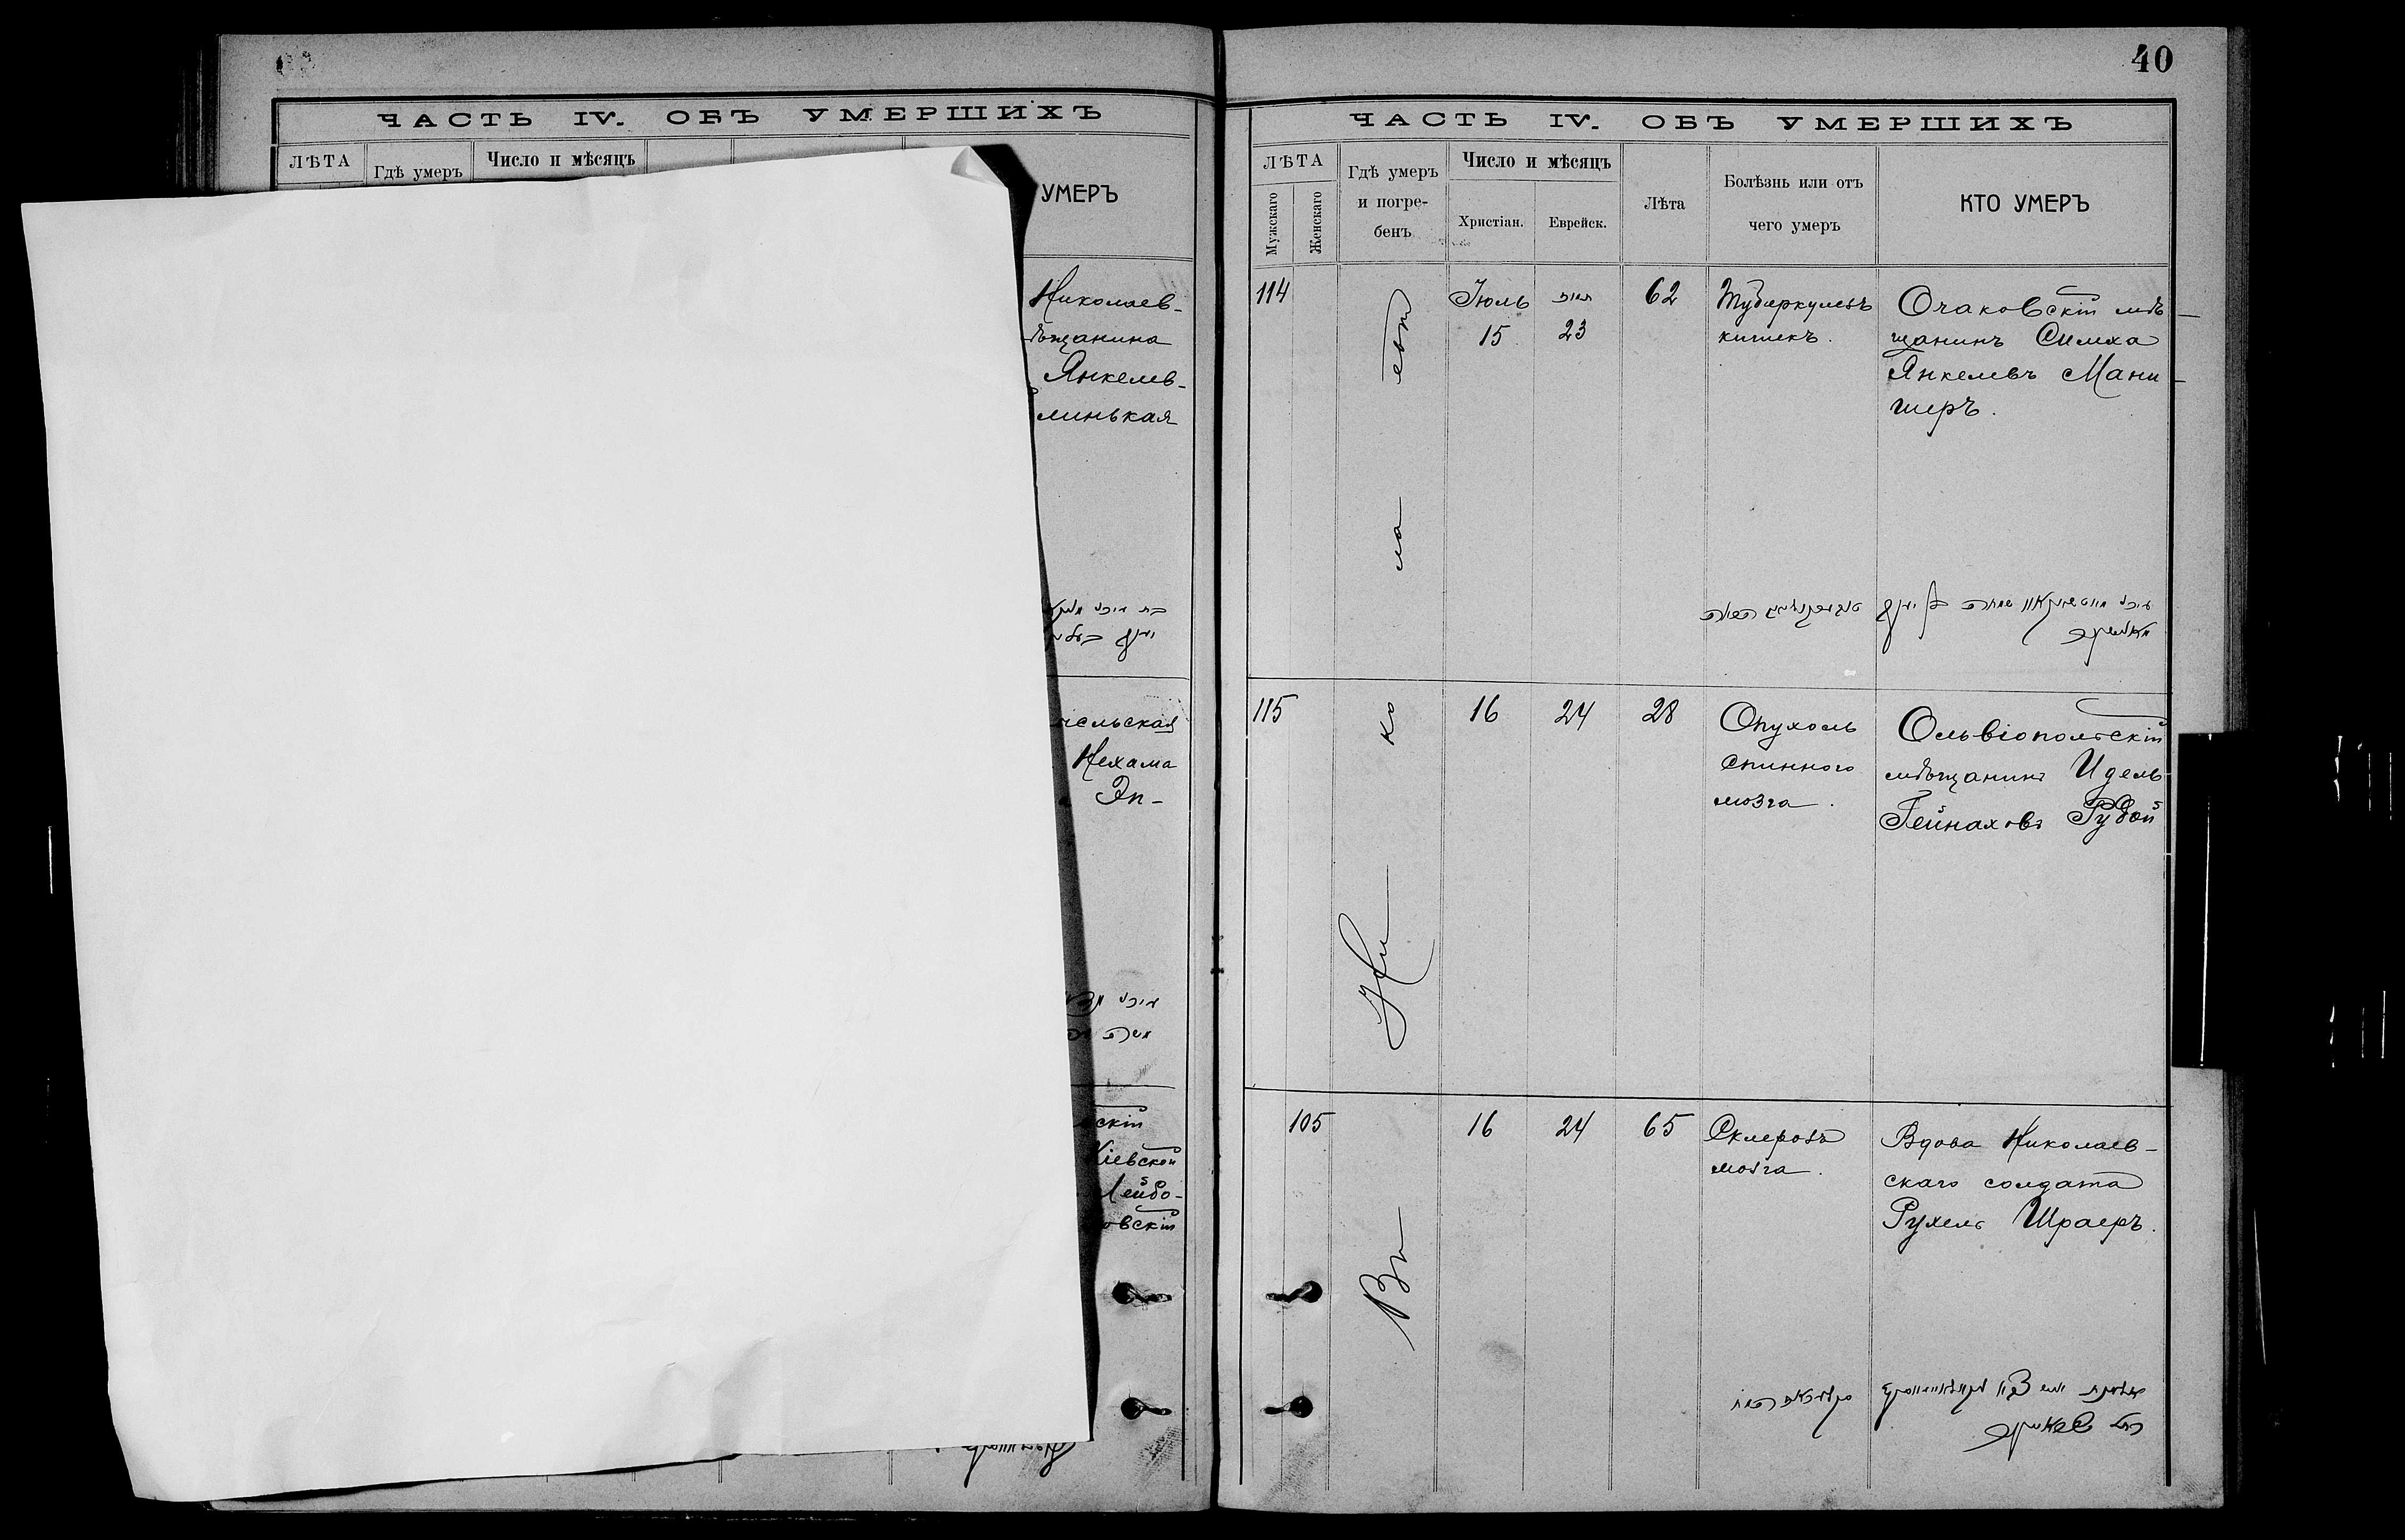 ЧАСТЬ IV. ОБЪ УМЕРШИХЪ
ЛѢТА
Гдѣ умеръ
Число и мѣсяцъ
УМЕРЪ
Николаев-
ѣщанина
Янкелев-
линькая
Нехама
Эп-
скій
Кіевской
Лейбо-
овскій
40
ЧАСТЬ IV. ОБЪ УМЕРШИХЪ
ЛѢТА
Мужскаго
Женскаго
Гдѣ умеръ
и погре-
бенъ
Число и мѣсяцъ
Христіан.
Еврейск.
Лѣта
Болѣзнь или отъ
чего умеръ
КТО УМЕРЪ
114
Іюль
15
23
62
Туберкулезъ
кишекъ.
Очаковскій мѣ-
щанинъ Симха
Янкелевъ Мани-
шеръ.
115
16
24
28
Опухоль
спинного
мозга.
Ольвіопольскій
мѣщанинъ Идель
Гейнаховъ Рудой
Въ Ни ко ла евѣ
105
16
24
65
Склерозъ
мозга.
Вдова Николаев-
скаго солдата
Рухель Шраеръ.